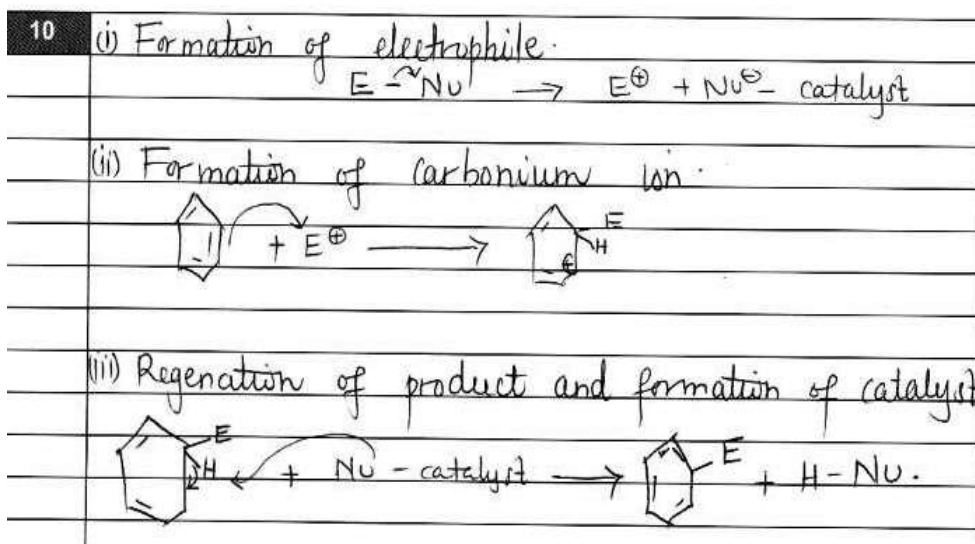 10
(i) Formation of electrophile.
E - Nu → E⊕ + Nu⊖ - catalyst
(ii) Formation of carbonium ion.
+ E⊕ → E
H
⊕
(iii) Regenation of product and formation of catalyst
E
H + Nu - catalyst → E + H - Nu.